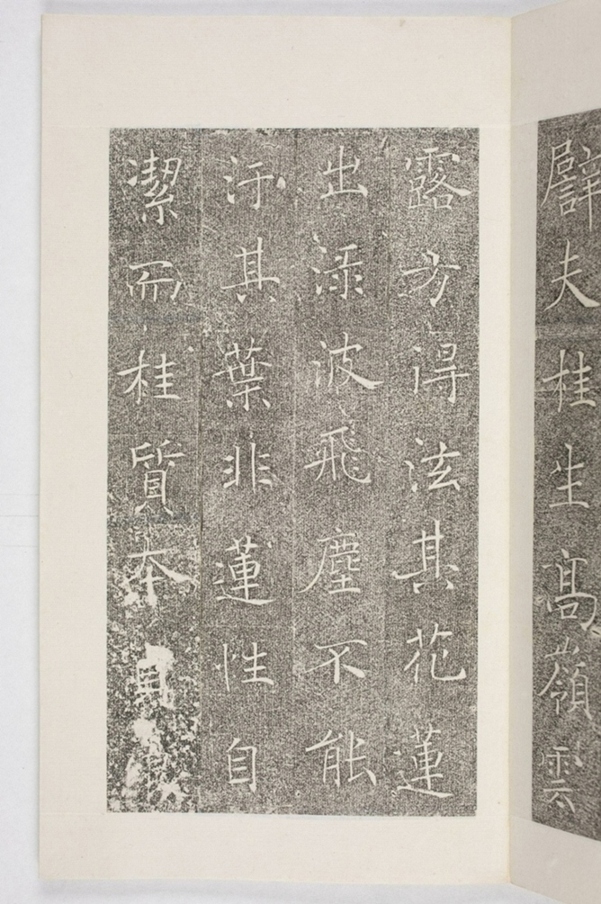 譬夫桂生髙嶺雲
露方得泫其花蓮
出淥波飛塵不能
汙其葉非蓮性自
潔而桂質本貞